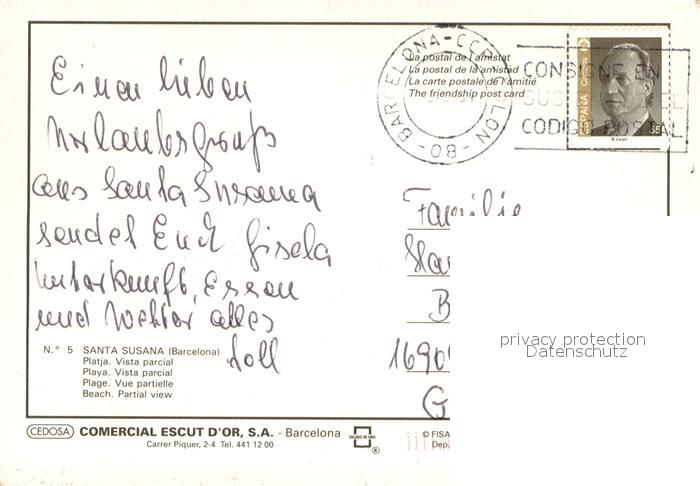 Einen lieben
Urlaubsgruß
aus Santa Susanna
sendet Euch Gisela
Unterkunft, Essen
und Wetter alles
toll
N.° 5 SANTA SUSANA (Barcelona)
Platja. Vista parcial
Playa. Vista parcial
Plage. Vue partielle
Beach. Partial view
La postal de l'amistat
La postal de la amistad
La carte postale de l'amitié
The friendship post card
BARCELONA - CCP COLON - 80 -
CONSIGNE EN
SUS
EL
CODIGO POSTAL
ESPAÑA Correos
35
Familie
B
1690
G
privacy protection
Datenschutz
CEDOSA COMERCIAL ESCUT D'OR, S.A. - Barcelona
ESCUDO DE ORO ®
Carrer Piquer, 2-4 Tel. 441 12 00
© FISA
Dep.